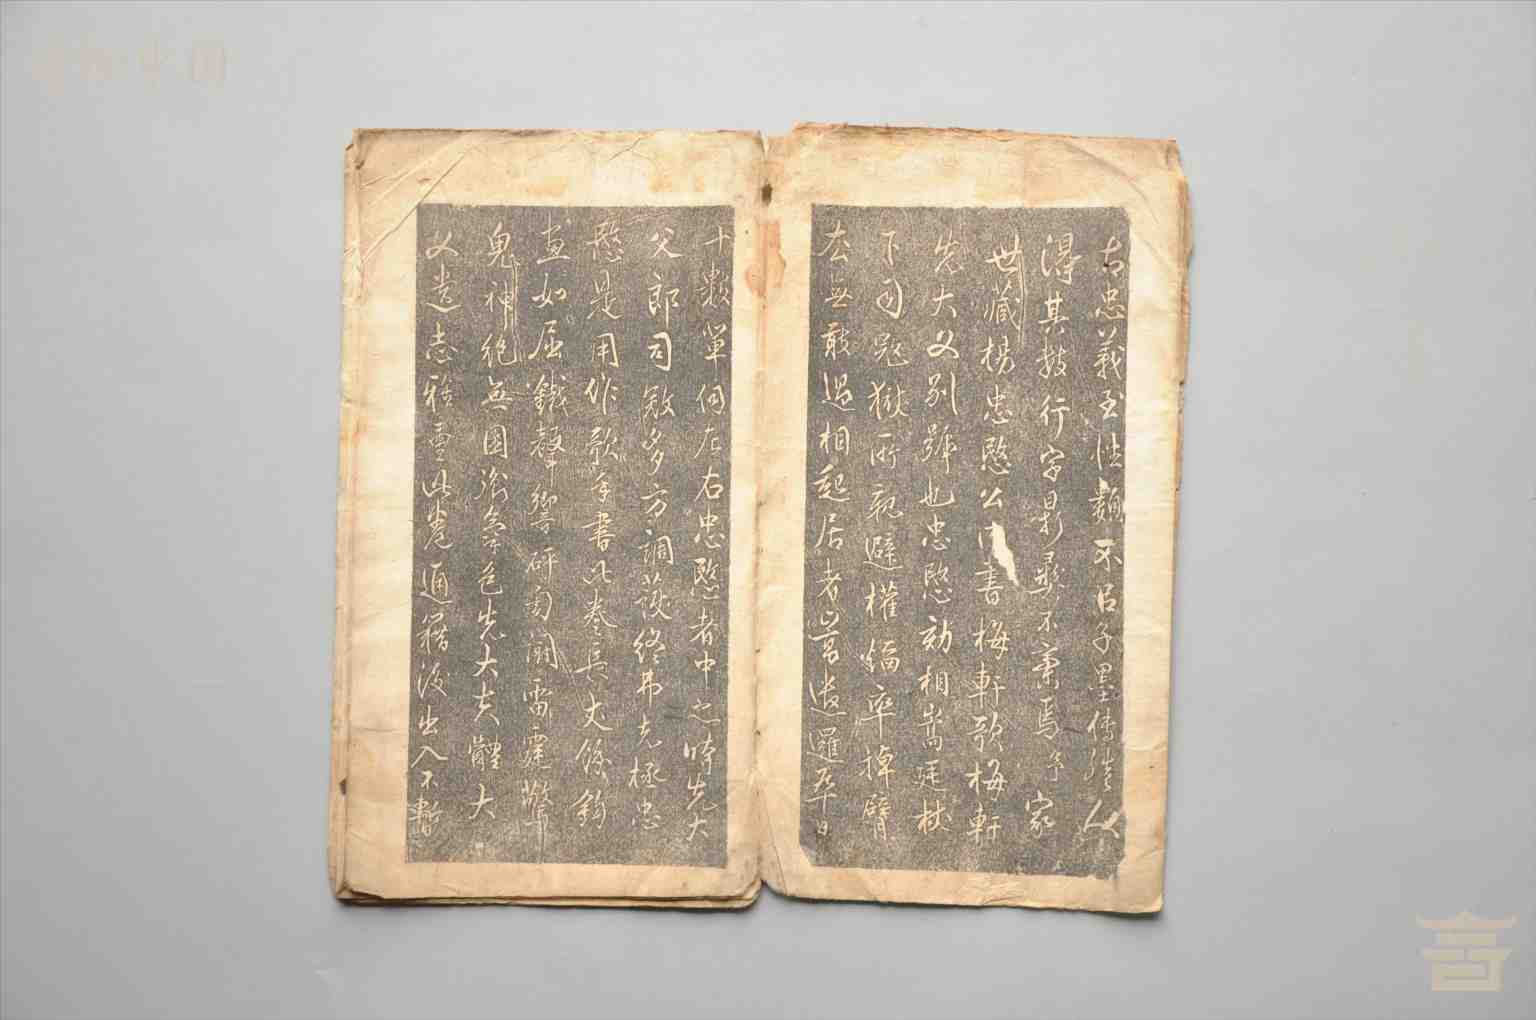 古忠義至性類不以子墨傳然人
得其數行字最彩亟不棄焉予家
世藏楊忠愍公書梅軒歌梅軒
先大父別號也忠愍劾相嵩廷杖
下司寇獄所親避權鋒率掉臂
去無敢過相起居者嵩遣邏卒日
十數輩伺左右忠愍者中之時先大
父郎司敵多方調護終弗克極忠
愍是用作歌手書此卷長丈餘鈎
畫如屈鐵聲響砰訇閧雷霆驚
鬼神絕無困瘁氣色先大夫體大
父遺志雅重此卷通籍後出入不暫